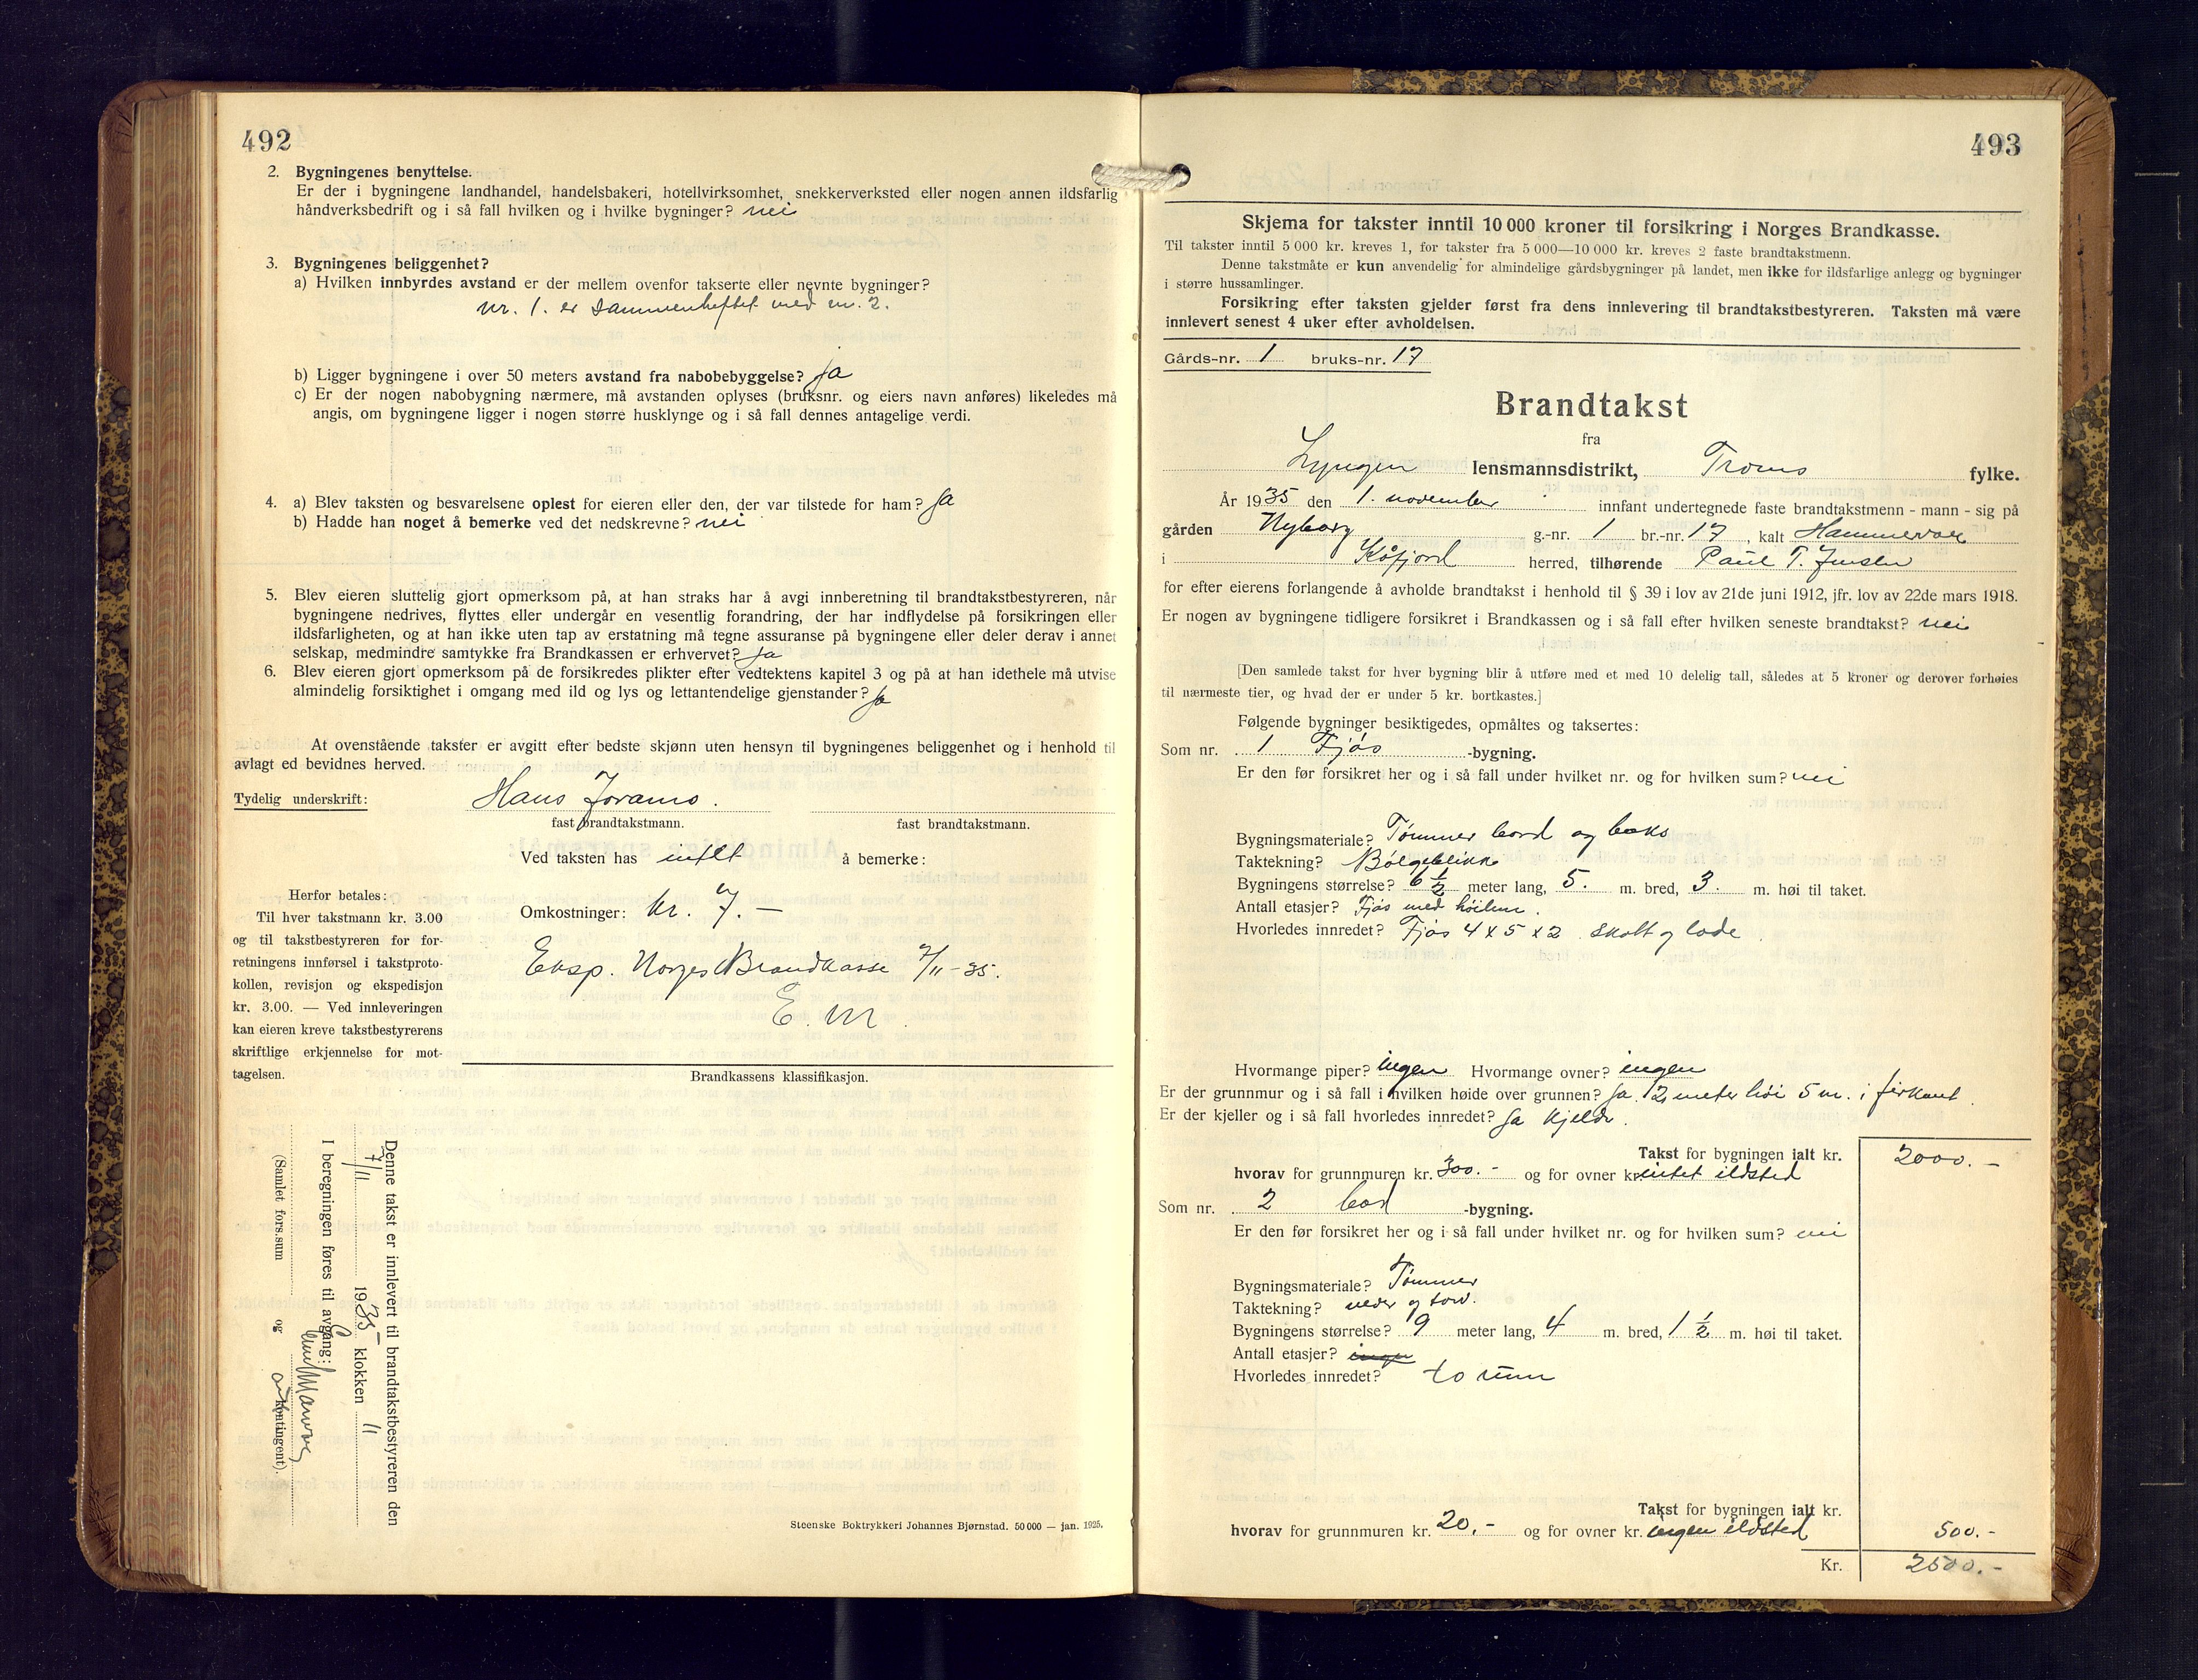 492
2. Bygningenes benyttelse.
Er der i bygningene landhandel, handelsbakeri, hotellvirksomhet, snekkerverksted eller nogen annen ildsfarlig
håndverksbedrift og i så fall hvilken og i hvilke bygninger? nei
3. Bygningenes beliggenhet?
a) Hvilken innbyrdes avstand er der mellem ovenfor takserte eller nevnte bygninger?
nr. 1. er sammenheftet med nr. 2.
b) Ligger bygningene i over 50 meters avstand fra nabobebyggelse? ja
c) Er der nogen nabobygning nærmere, må avstanden oplyses (bruksnr. og eiers navn anføres) likeledes må
angis, om bygningene ligger i nogen større husklynge og i så fall dennes antagelige verdi.
4. a) Blev taksten og besvarelsene oplest for eieren eller den, der var tilstede for ham? Ja
b) Hadde han noget å bemerke ved det nedskrevne? nei
5. Blev eieren sluttelig gjort opmerksom på, at han straks har å avgi innberetning til brandtakstbestyreren, når
bygningene nedrives, flyttes eller undergår en vesentlig forandring, der har indflydelse på forsikringen eller
ildsfarligheten, og at han ikke uten tap av erstatning må tegne assuranse på bygningene eller deler derav i annet
selskap, medmindre samtykke fra Brandkassen er erhvervet? Ja
6. Blev eieren gjort opmerksom på de forsikredes plikter efter vedtektens kapitel 3 og på at han idethele må utvise
almindelig forsiktighet i omgang med ild og lys og lettantendelige gjenstander? Ja
At ovenstående takster er avgitt efter bedste skjønn uten hensyn til bygningenes beliggenhet og i henhold til
avlagt ed bevidnes herved.
Tydelig underskrift: Hans Joramo.
fast brandtakstmann. fast brandtakstmann.
Ved taksten has intet å bemerke:
Herfor betales:
Til hver takstmann kr. 3.00
og til takstbestyreren for for-
retningens innførsel i takstproto-
kollen, revisjon og ekspedisjon
kr. 3.00. — Ved innleveringen
kan eieren kreve takstbestyrerens
skriftlige erkjennelse for mot-
tagelsen.
Omkostninger: kr. 7.—
Eksp. Norges Brandkasse 7/11-35.
E. M.
Brandkassens klassifikasjon.
Denne takst er innlevert til brandtakstbestyreren den
7/11 1935 klokken 11
I beregningen føres til avgang:
(Samlet fors.sum og kontingent).
Steenske Boktrykkeri Johannes Bjørnstad. 50 000 — jan. 1925.
493
Skjema for takster inntil 10 000 kroner til forsikring i Norges Brandkasse.
Til takster inntil 5 000 kr. kreves 1, for takster fra 5 000—10 000 kr. kreves 2 faste brandtakstmenn.
Denne takstmåte er kun anvendelig for almindelige gårdsbygninger på landet, men ikke for ildsfarlige anlegg og bygninger
i større hussamlinger.
Forsikring efter taksten gjelder først fra dens innlevering til brandtakstbestyreren. Taksten må være
innlevert senest 4 uker efter avholdelsen.
Gårds-nr. 1 bruks-nr. 17
Brandtakst
fra
Lyngen lensmannsdistrikt, Troms fylke.
År 1935 den 1. november innfant undertegnede faste brandtakstmenn - mann - sig på
gården Nyborg g.-nr. 1 br.-nr. 17, kalt Hammervoll
i Kåfjord herred, tilhørende Paul T. Jensen
for efter eierens forlangende å avholde brandtakst i henhold til § 39 i lov av 21de juni 1912, jfr. lov av 22de mars 1918.
Er nogen av bygningene tidligere forsikret i Brandkassen og i så fall efter hvilken seneste brandtakst? nei
[Den samlede takst for hver bygning blir å utføre med et med 10 delelig tall, således at 5 kroner og derover forhøies
til nærmeste tier, og hvad der er under 5 kr. bortkastes.]
Følgende bygninger besiktigedes, opmåltes og taksertes:
Som nr. 1 Fjøs -bygning.
Er den før forsikret her og i så fall under hvilket nr. og for hvilken sum? nei
Bygningsmateriale? Tømmer bord og baks
Taktekning? Bølgeblikk
Bygningens størrelse? 6 ½ meter lang, 5. m. bred, 3. m. høi til taket.
Antall etasjer? Fjøs med høilem.
Hvorledes innredet? Fjøs 4 x 5 x 2. skott og lade.
Hvormange piper? ingen Hvormange ovner? ingen
Er der grunnmur og i så fall i hvilken høide over grunnen? Ja. 2 meter høi 5 m. i firkant.
Er der kjeller og i så fall hvorledes innredet? Ja kjelder.
Takst for bygningen ialt kr. 2000.—
hvorav for grunnmuren kr. 300.- og for ovner kr. intet ildsted
Som nr. 2 bod -bygning.
Er den før forsikret her og i så fall under hvilket nr. og for hvilken sum? nei
Bygningsmateriale? Tømmer
Taktekning? never og torv.
Bygningens størrelse? 9 meter lang, 4 m. bred, 1 ½ m. høi til taket.
Antall etasjer? ingen
Hvorledes innredet? to rum
Takst for bygningen ialt kr.
hvorav for grunnmuren kr. 20.- og for ovner kr. ingen ildsted 500.-
Kr. 2500.-